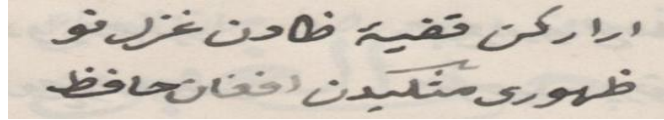 ارارکن قفیة ظادن غزل نو
ظهوری مثکیدن افغان حافظ